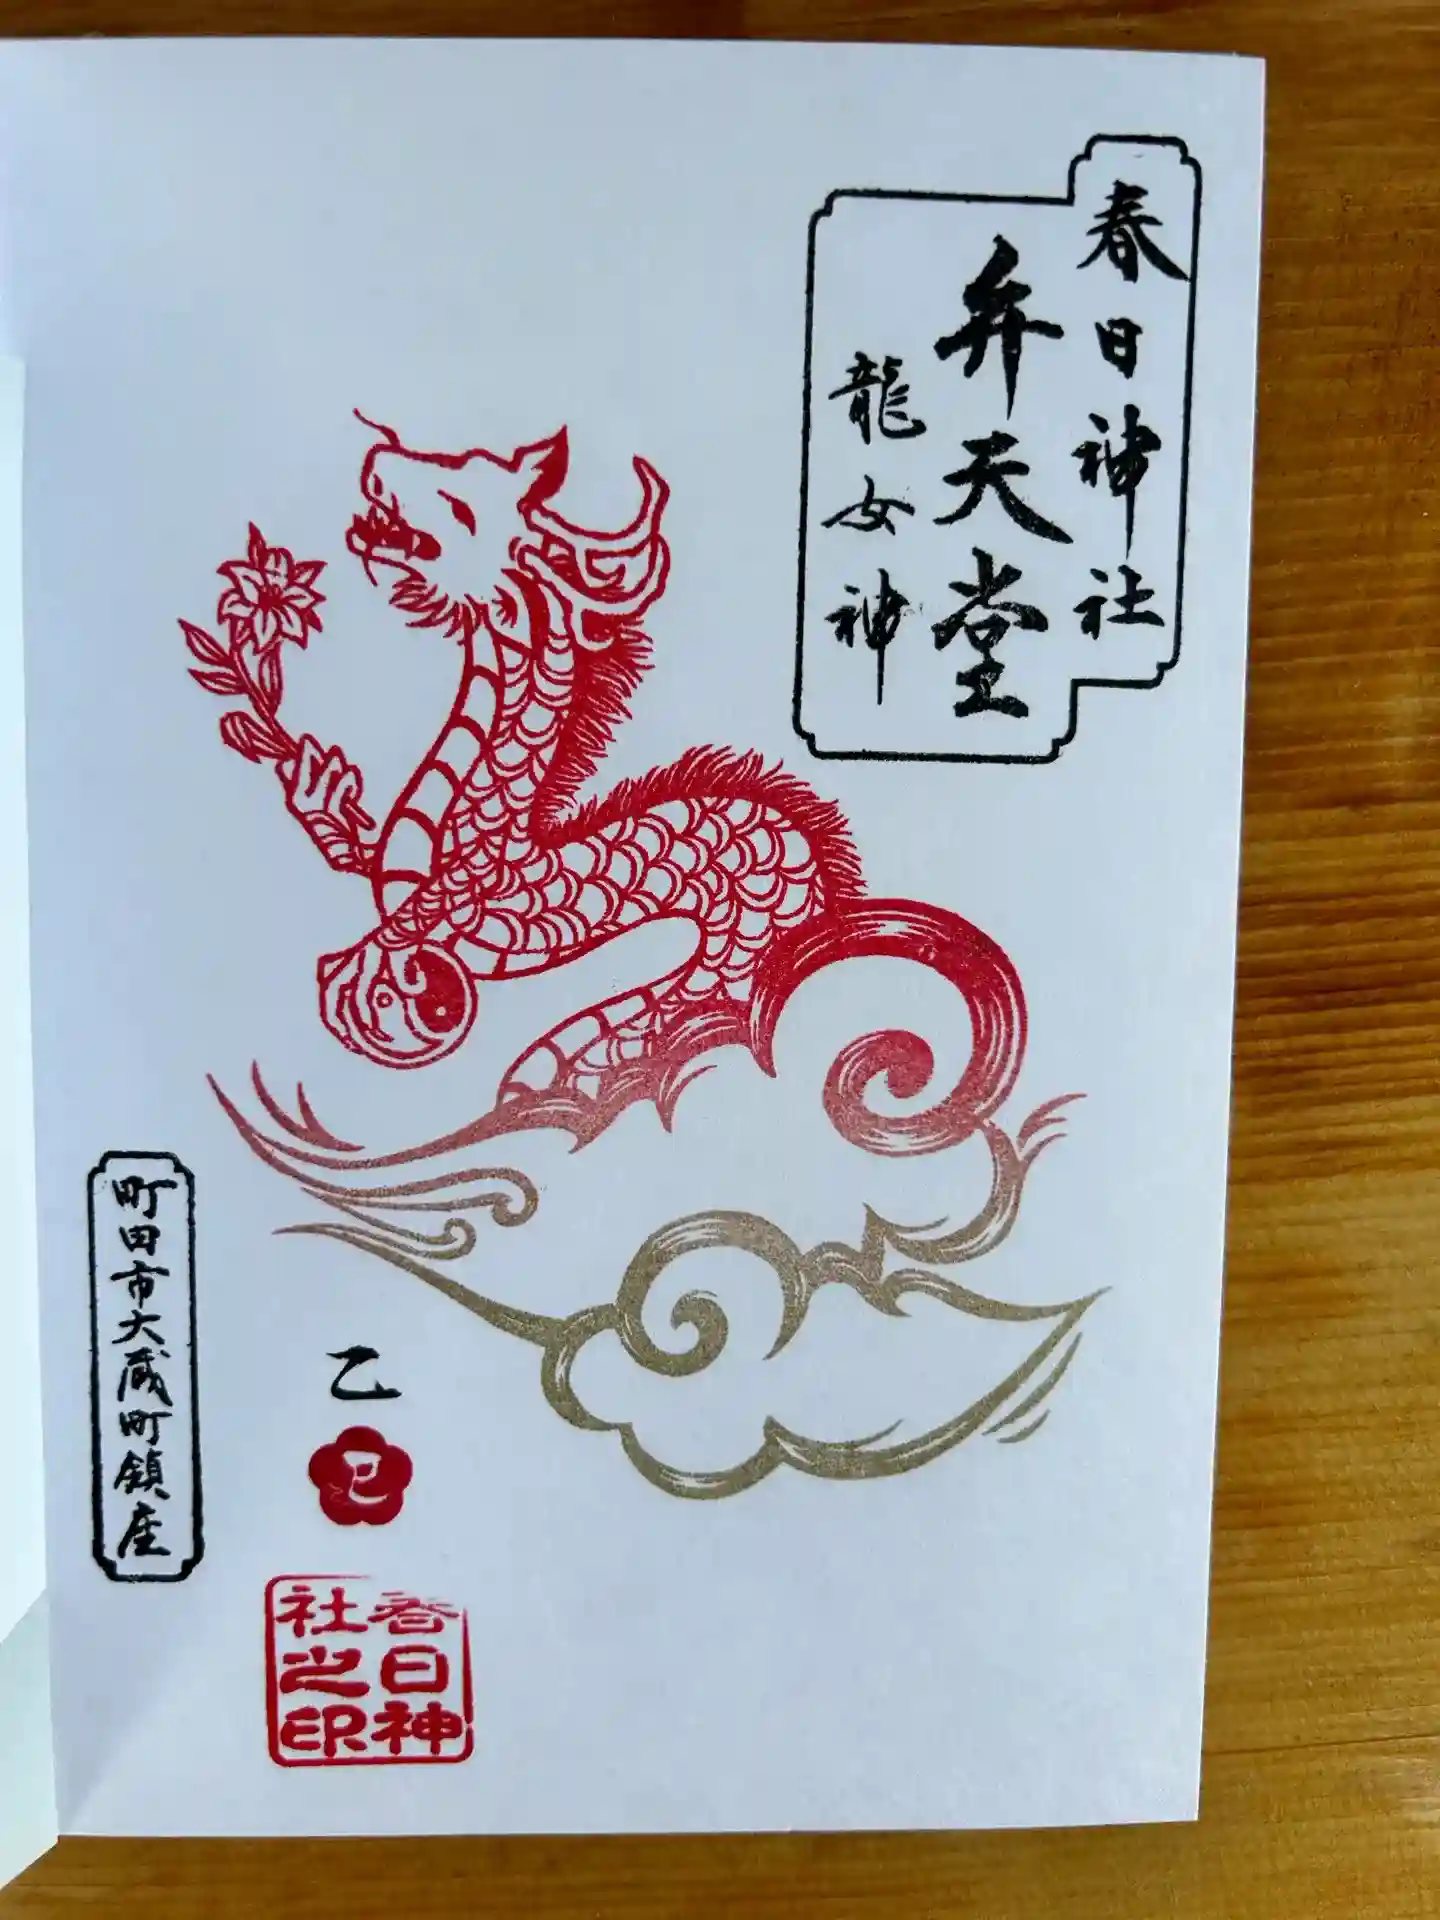 春日神社
弁天堂
龍女神
乙
巳
春日神
社之印
町田市大蔵町鎮座